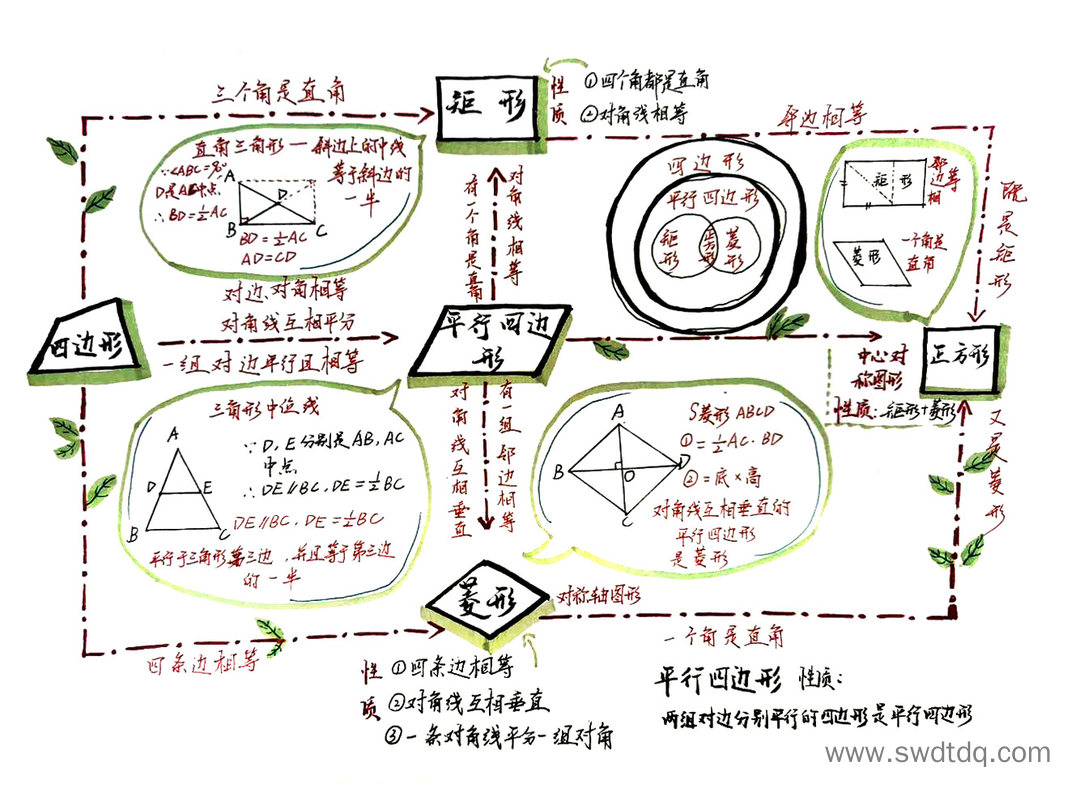 三个角是直角
矩形
性质
①四个角都是直角
②对角线相等
邻边相等
直角三角形一斜边上的中线
等于斜边的
一半
∵∠ABC=90°
D是AC中点
∴BD=½AC
A
D
B
C
BD=½AC
AD=CD
有一个角是直角
对角线相等
四边形
平行四边形
矩形
正方形
菱形
矩形
邻边相等
菱形
一个角是
直角
既是矩形
对边、对角相等
对角线互相平分
一组对边平行且相等
四边形
平行四边
形
中心对
称图形
性质:矩形+菱形
正方形
三角形中位线
A
D
E
B
C
∵D、E分别是AB,AC
中点
∴DE∥BC,DE=½BC
DE∥BC,DE=½BC
平行于三角形第三边,并且等于第三边
的一半
对角线互相垂直
有一组邻边相等
A
B
D
O
C
S菱形ABCD
①=½AC·BD
②=底×高
对角线互相垂直的
平行四边形
是菱形
又是菱形
菱形
对称轴图形
四条边相等
一个角是直角
性质
①四条边相等
②对角线互相垂直
③一条对角线平分一组对角
平行四边形 性质:
两组对边分别平行的四边形是平行四边形
www.swdtdq.com